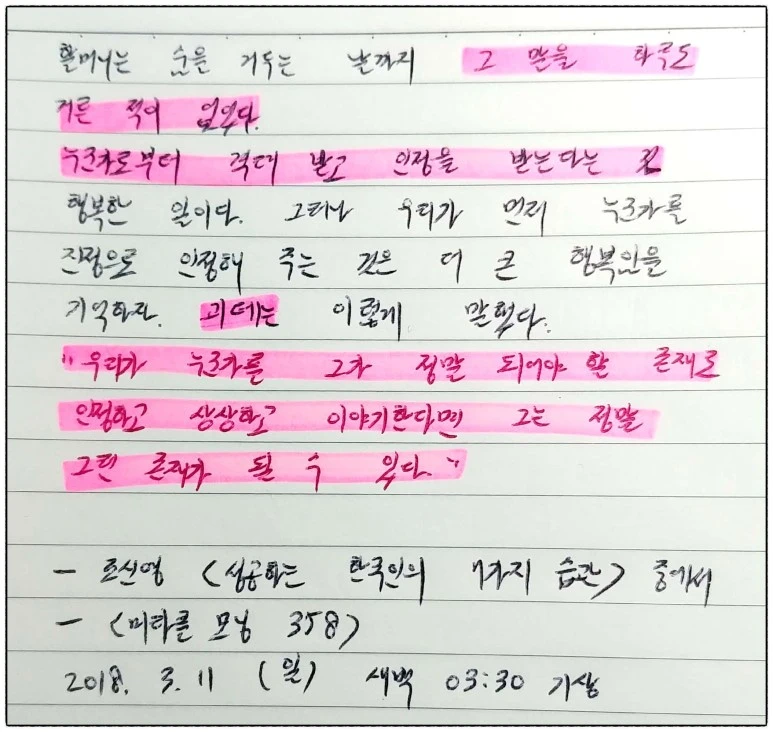 할머니는 숨을 거두는 날까지 그 말을 하루도
거른 적이 없었다.
누군가로부터 격려 받고 인정을 받는다는 건
행복한 일이다. 그러나 우리가 먼저 누군가를
진정으로 인정해 주는 것은 더 큰 행복인을
기억하자. 괴테는 이렇게 말했다.
"우리가 누군가를 그가 정말 되어야 할 존재로
인정하고 상상하고 이야기한다면 그는 정말
그런 존재가 될 수 있다."
- 조신영 <성공하는 한국인의 7가지 습관> 중에서
- <미라클 모닝 358>
2018. 3. 11 (일) 새벽 03:30 기상